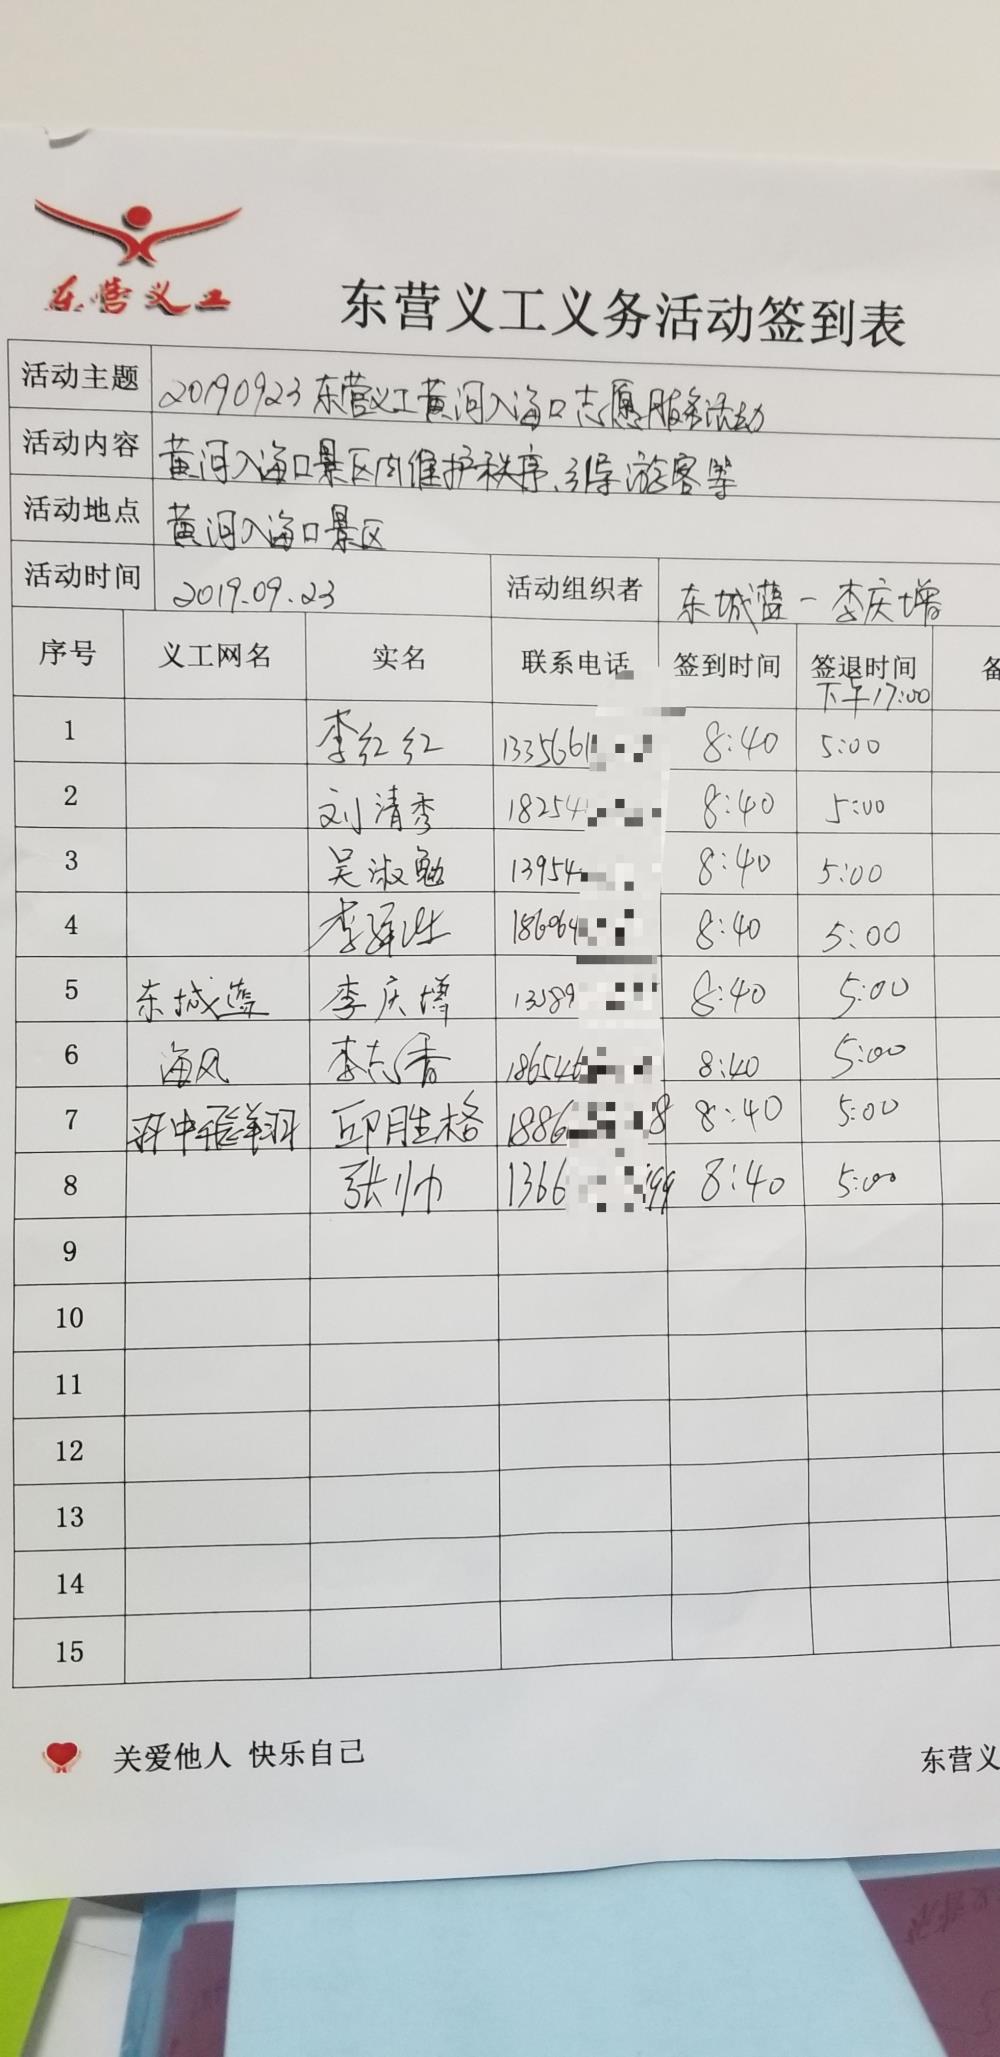 东营义工
东营义工义务活动签到表
活动主题 20190923东营义工黄河入海口志愿服务活动
活动内容 黄河入海口景区内维护秩序、引导游客等
活动地点 黄河入海口景区
活动时间 2019.09.23 活动组织者 东城蓝-李庆增
序号 义工网名 实名 联系电话 签到时间 签退时间 备
下午17:00
1 李红红 1335661 8:40 5:00
2 刘清秀 18254 8:40 5:00
3 吴淑勉 13954 8:40 5:00
4 李 8:40 5:00
5 东城蓝 李庆增 8:40 5:00
6 海风 李志香 186546 8:40 5:00
7 邱胜格 1886 8 8:40 5:00
8 张帅 1366 199 8:40 5:00
9
10
11
12
13
14
15
关爱他人 快乐自己 东营义